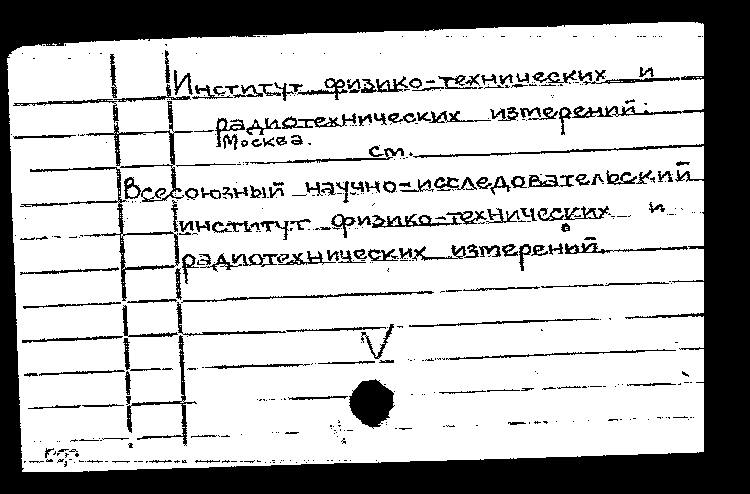 Институт физико-технических и
радиотехнических измерений.
Москва.
см.
Всесоюзный научно-исследовательский
институт физико-технических и
радиотехнических измерений.